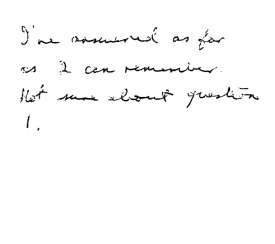 I've answered as far
as I can remember.
Not sure about question
1.